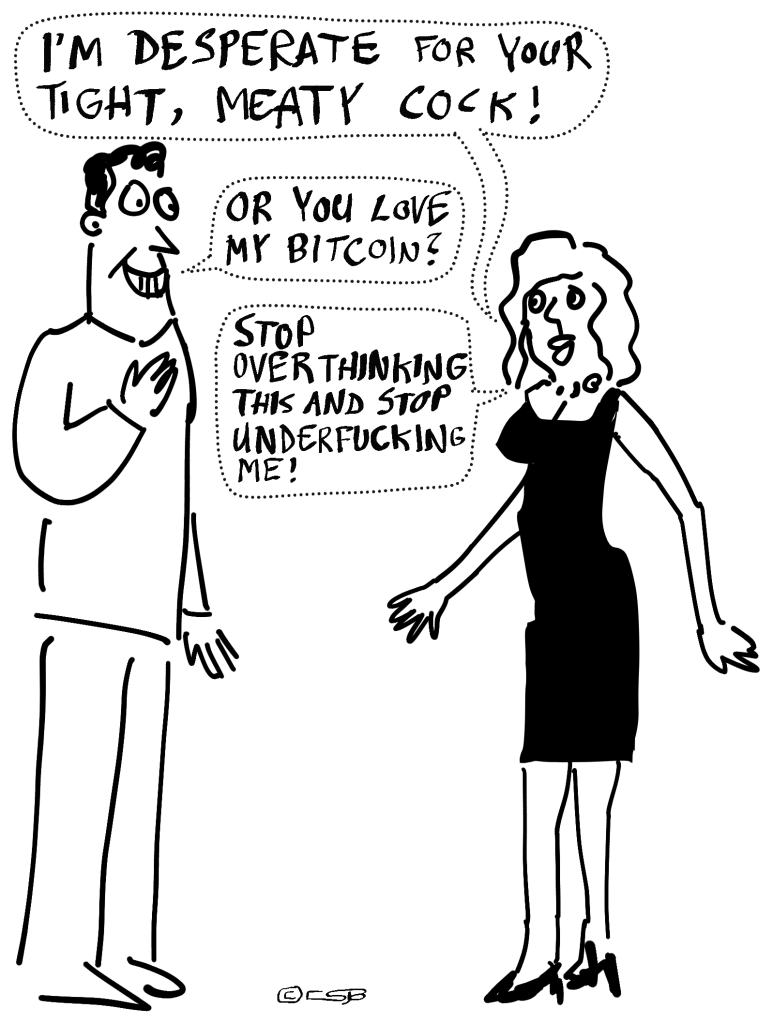 I'M DESPERATE FOR YOUR
TIGHT, MEATY COCK!
OR YOU LOVE
MY BITCOIN?
STOP
OVERTHINKING
THIS AND STOP
UNDERFUCKING
ME!
© CSB